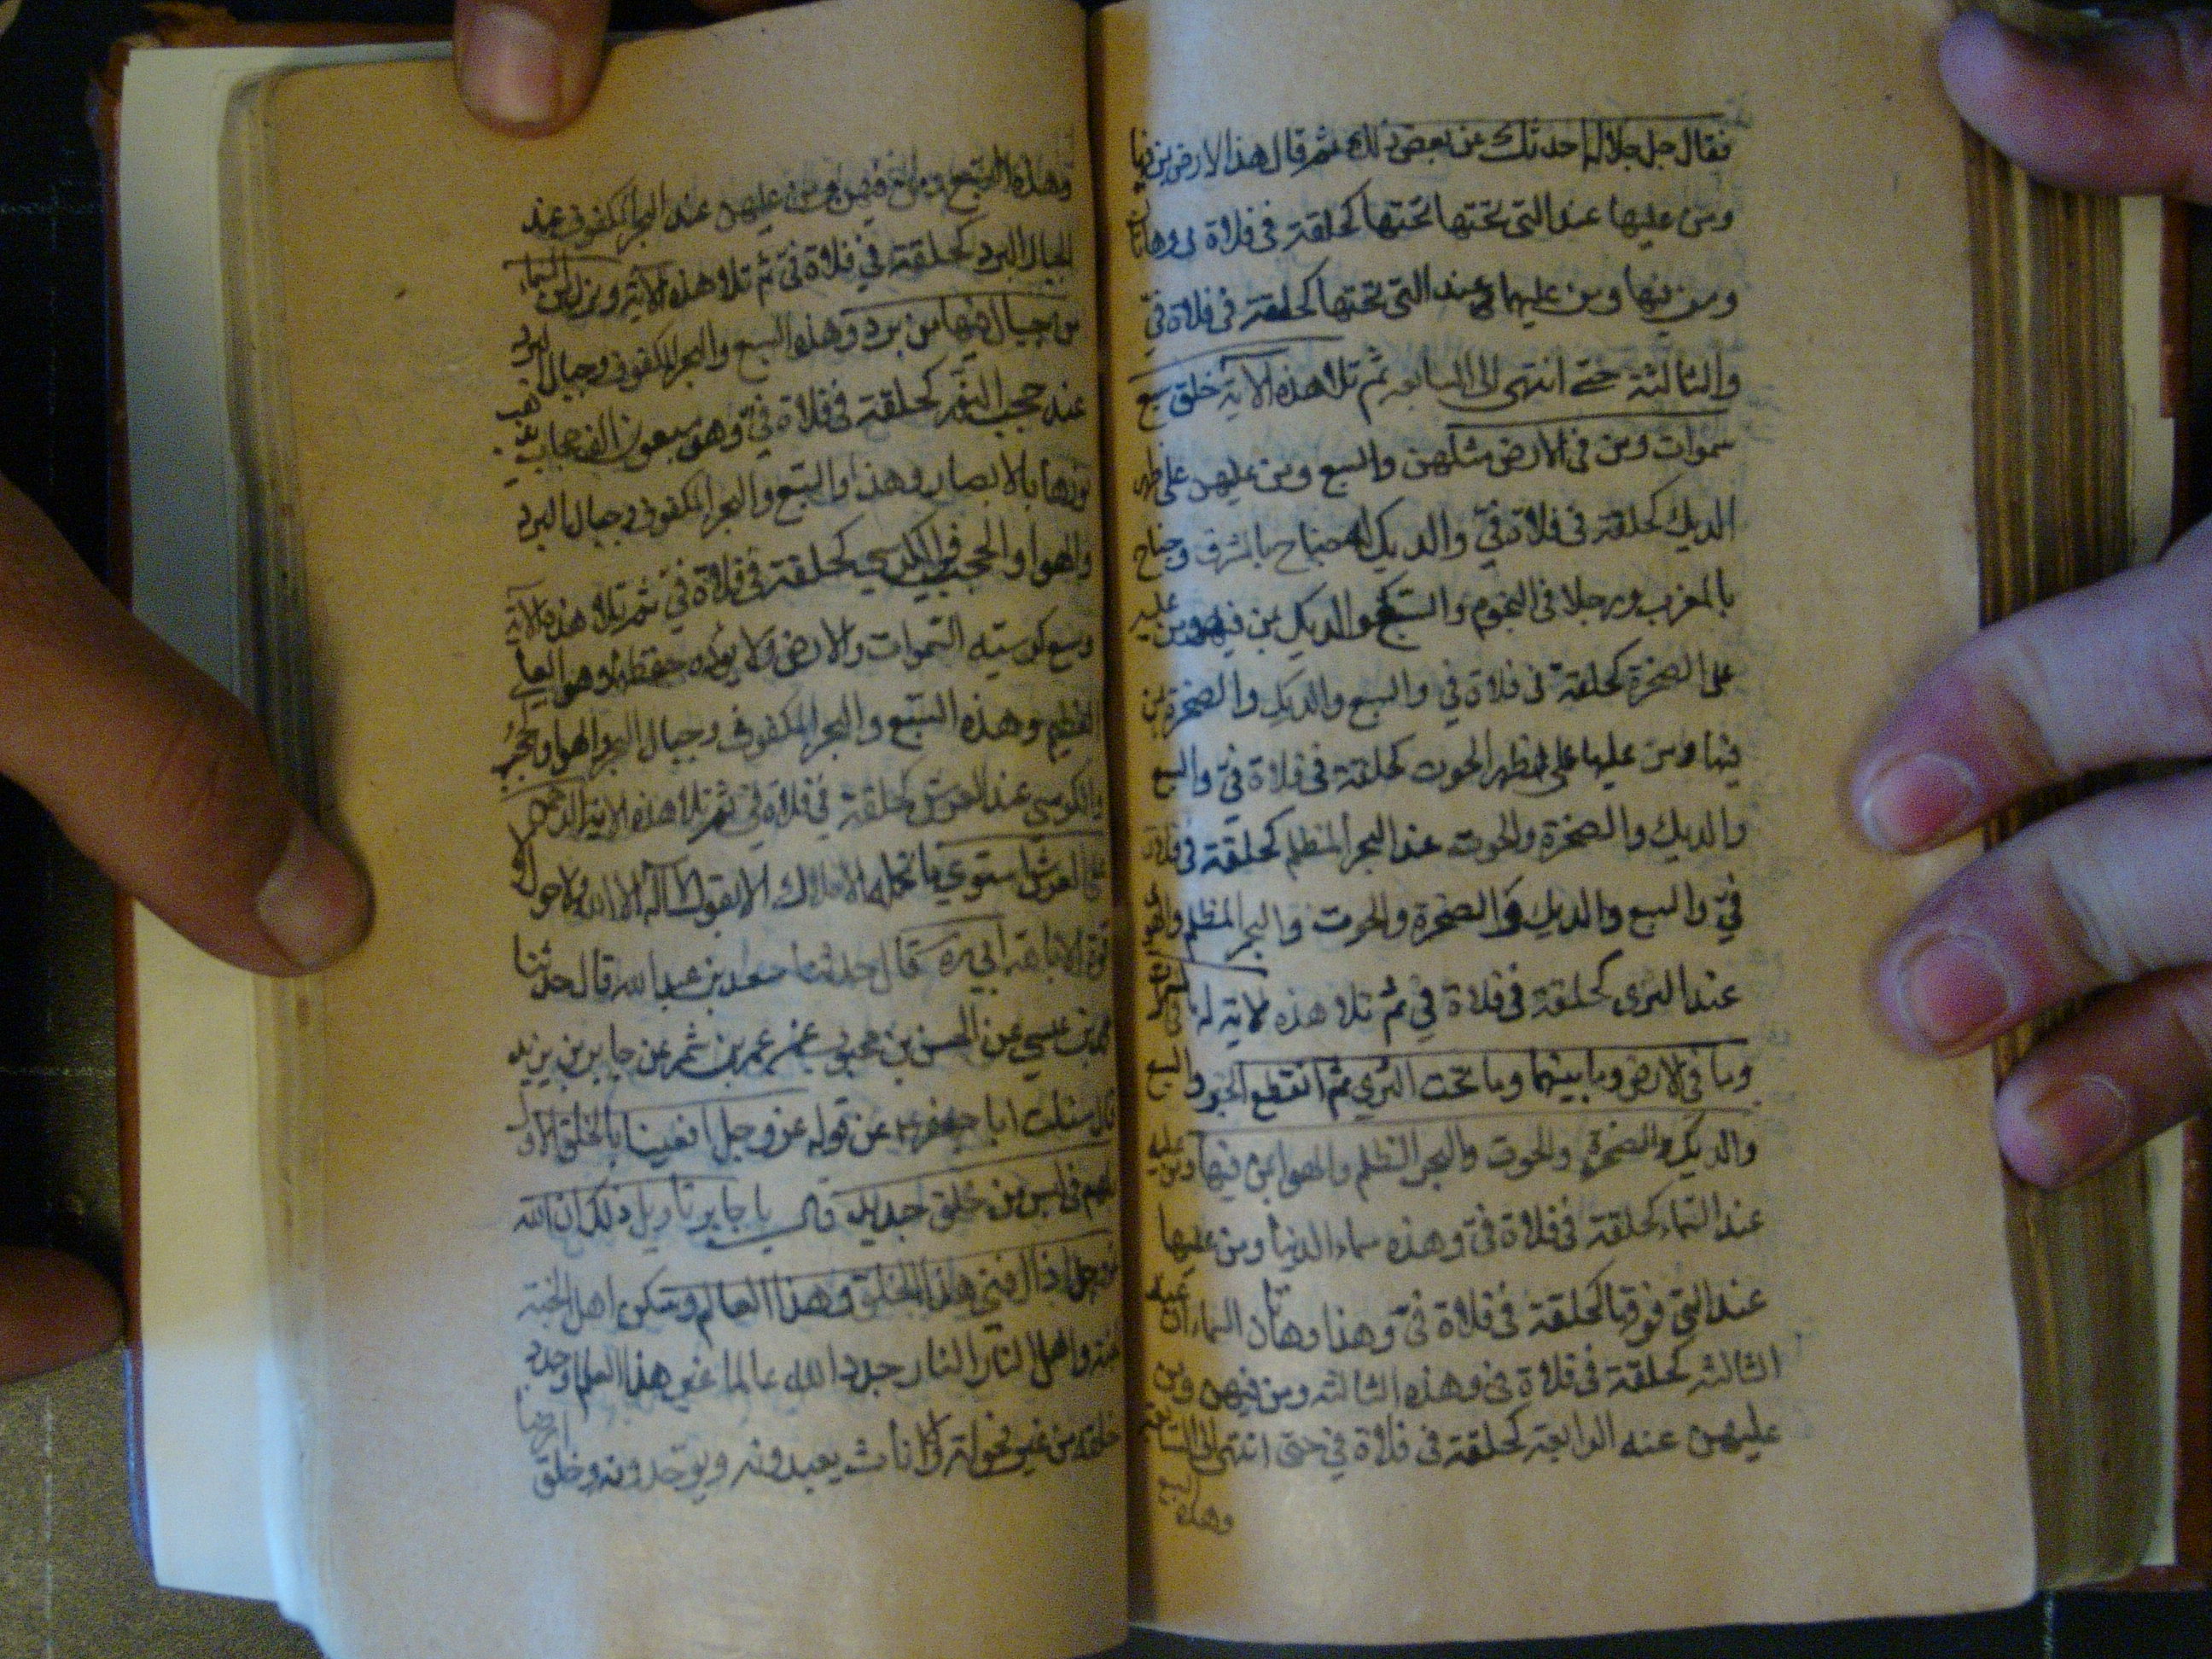 فقال جل جلاله احدثك عن بعض ذلك ثم قال هذا الارض بن فيها
ومن عليها عند التي تحتها تحتها كحلقة في فلاة في وهاتان
ومن فيها ومن عليهما عند التي تحتها كحلقة في فلاة في
والثالثة حتى انتهى الى السابعه ثم تلا هذه الاية خلق سبع
سموات ومن في الارض مثلهن والسبع ومن عليهن على ظهر
الديك كحلقة في فلاة في والديك له جناح بالمشرق وجناح
بالمغرب ورجلا في التخوم والسبع والديك بن فيهن ومن عليه
على الصخرة كحلقة في فلاة في والسبع والديك والصخرة بن
فيها ومن عليها على ظهر الحوت كحلقة في فلاة في والسبع
والديك والصخرة والحوت عند البحر المظلم كحلقة في فلاة
في والسبع والديك والصخرة والحوت والبحر المظلم والهواء
عند الثرى كحلقة في فلاة في ثم تلا هذه الاية له
وما في الارض وما بينهما وما تحت الثرى ثم انقطع الخبر والسبع
والديك والصخرة والحوت والبحر المظلم والهوا بمن فيها ومن عليه
عند السماء كحلقة في فلاة في وهذه سماء الدنيا ومن عليها
عند التي فوقها كحلقة في فلاة في وهذا وهاتان السماءان عند
الثالثة كحلقة في فلاة في وهذه الثالثة ومن فيهن ومن
عليهن عنه الرابعة كحلقة في فلاة في حتى انتهى الى السابعة
وهذه
وهذه السبع ومن فيهن ومن عليهن عند البحر المكفوف عند
الجبال البرد كحلقة في فلاة في ثم تلا هذه الاية وينزل من السماء
من جبال فيها من برد وهذه السبع والبحر المكفوف وجبال البرد
عند حجب النور كحلقة في فلاة في وهو سبعون الف حجاب يذهب
نورها بالابصار وهذا والسبع والبحر المكفوف وجبال البرد
والهوا والحجب في الكرسي كحلقة في فلاة في ثم تلا هذه الاية
وسع كرسيه السموات والارض ولا يؤده حفظهما وهو العلي
العظيم وهذه السبع والبحر المكفوف وجبال البرد والهوا والحجب
والكرسي عند العرش كحلقة في فلاة في ثم تلا هذه الاية الرحمن
على العرش استوى ما تحمله الاملاك الا بقول لا اله الا الله ولا حول ولا
قوة الا بالله ابي ره قال حدثنا سعد بن عبد الله قال حدثنا
بن عيسى عن الحسن بن محبوب عن عمر بن شمر عن جابر بن يزيد
قال سئلت ابا جعفر عن قوله عز وجل افعيينا بالخلق الاول
بل هم في لبس من خلق جديد قال يا جابر تاويل ذلك ان الله
عز وجل اذا افنى هذا الخلق وهذا العالم وسكن اهل الجنة
الجنة واهل النار النار جدد الله عالما غير هذا العالم وجدد
خلقه من غير فحولة ولا اناث يعبدونه ويوحدونه وخلق